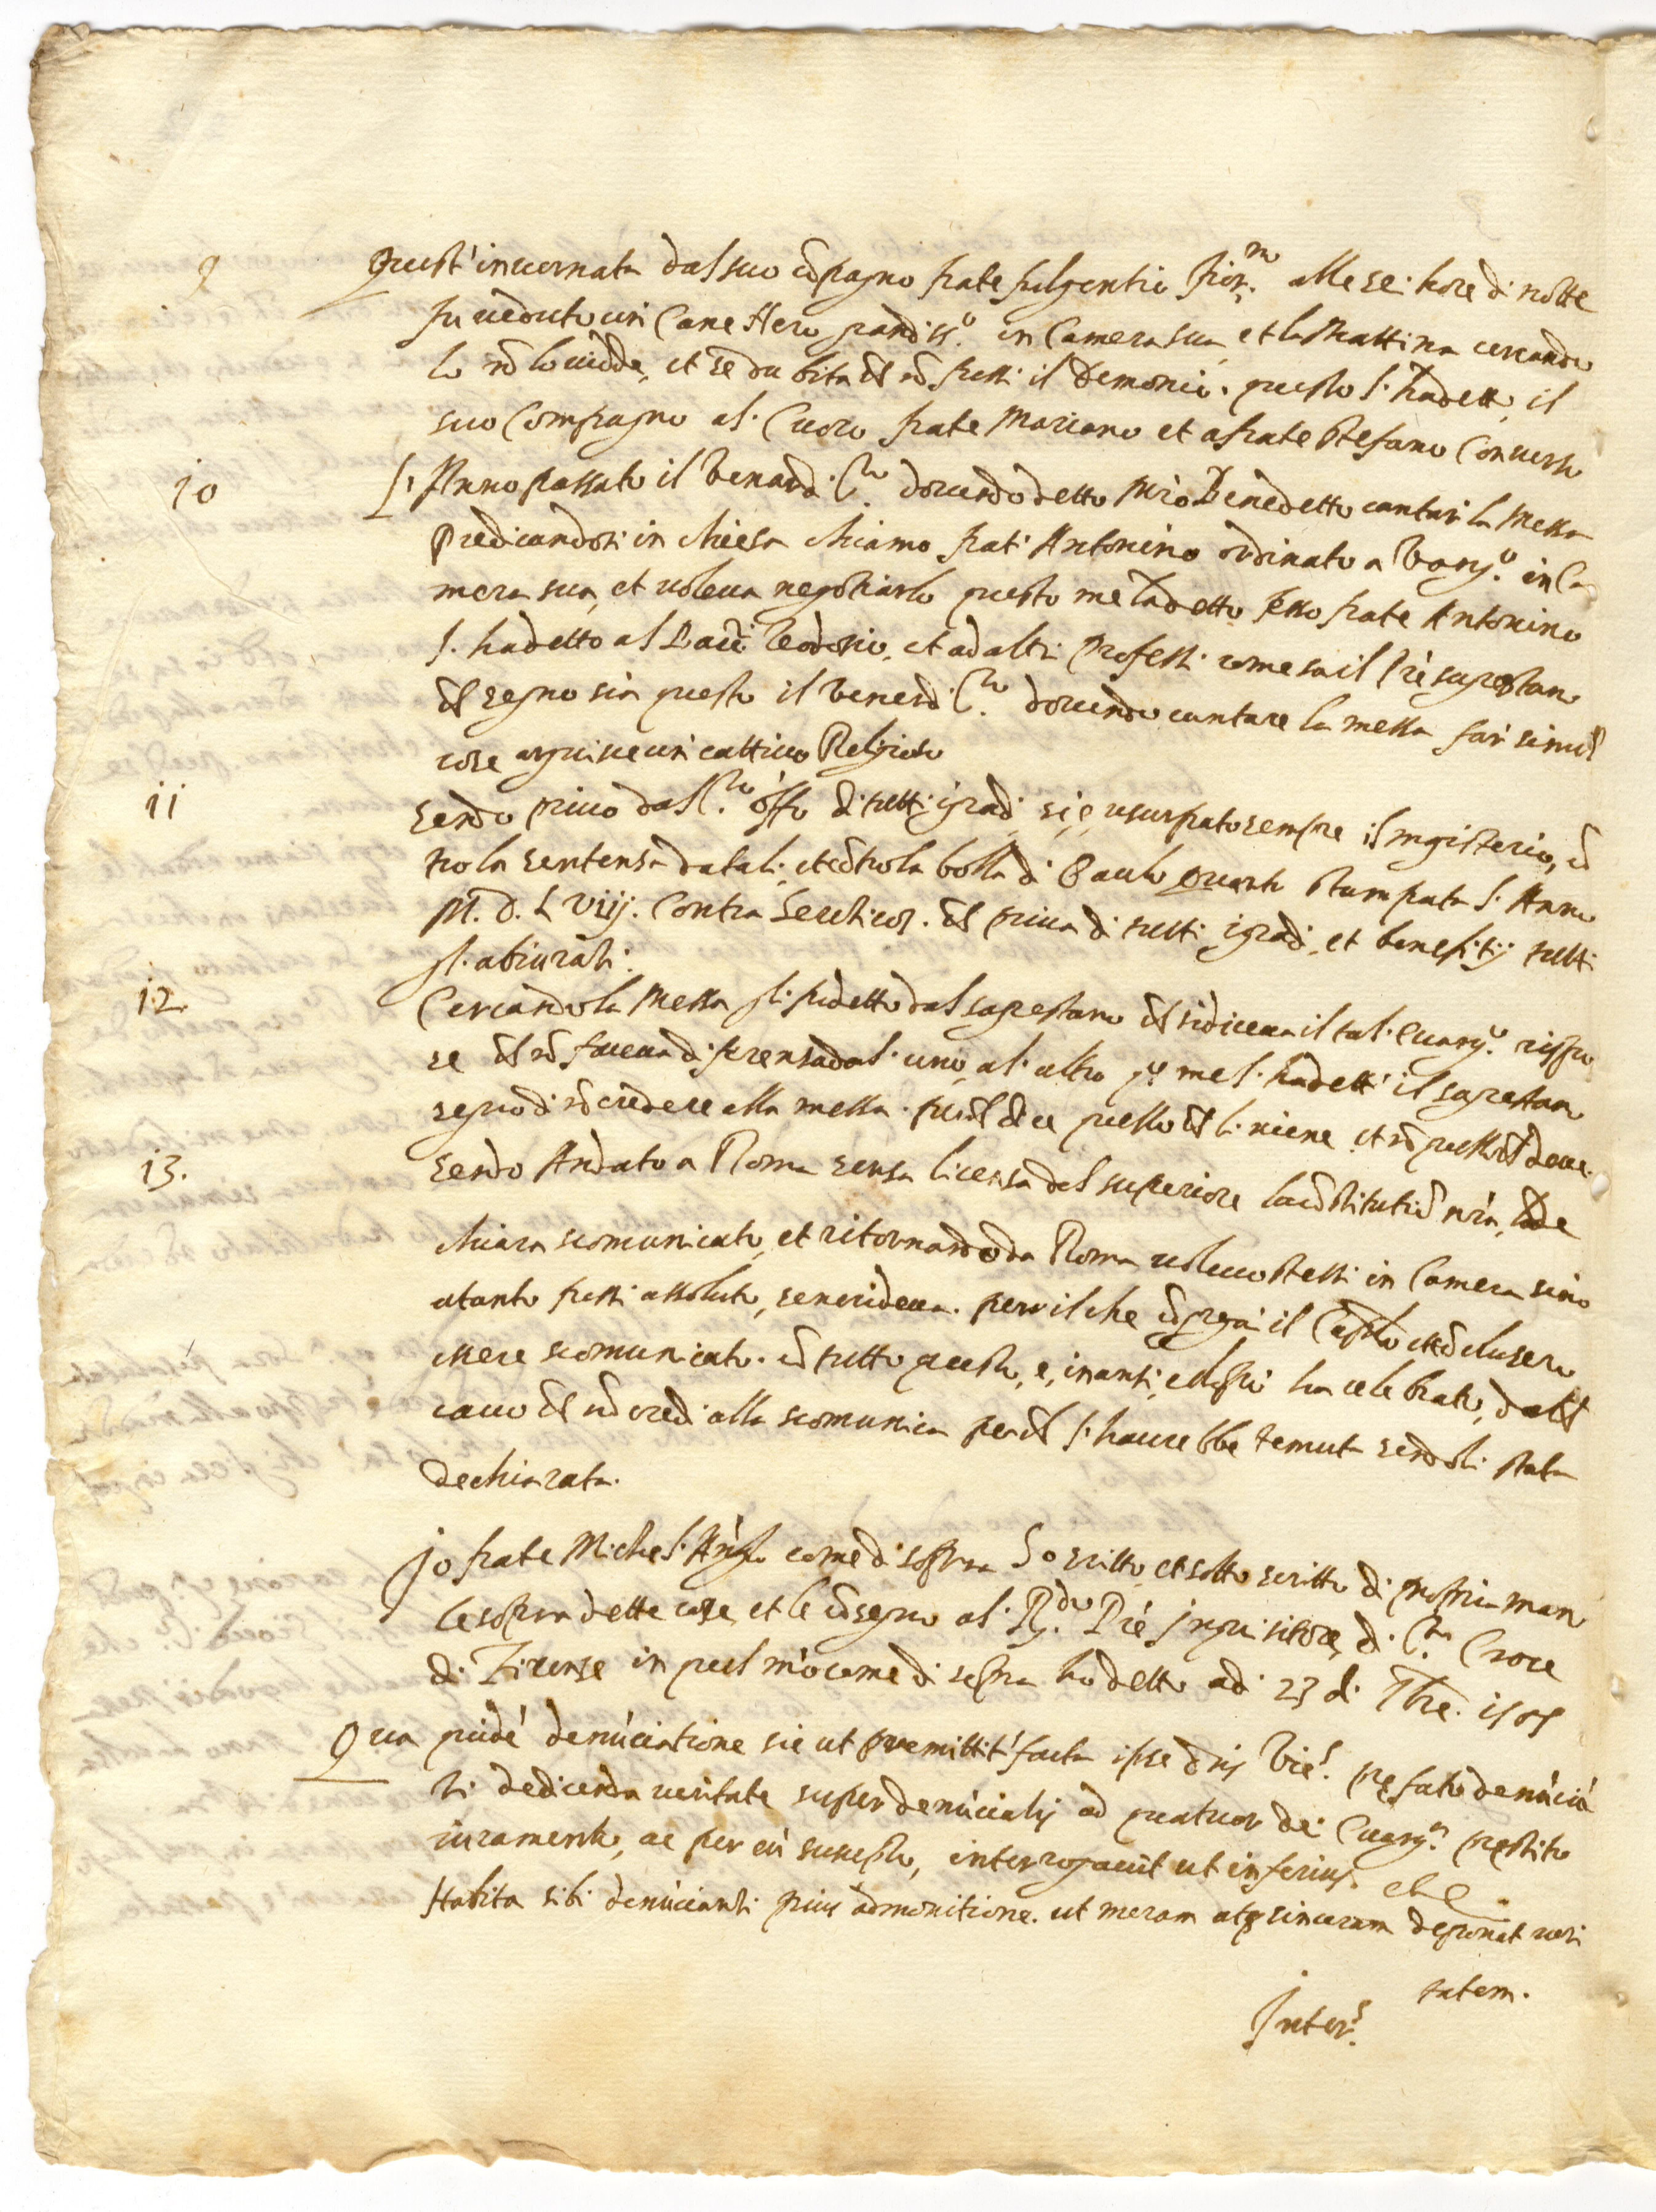 9 Quest' invernata dal suo cõpagno frate fulgentio fior.no alle sei hore di notte
fu veduto un Cane Nero grandiss.o in Camera sua, et la Mattina cercando
lo nõ lo vidde, et se dubita chẽ nõ fussi il Demonio. questo l'ha detto il
suo Compagno al. Cuoco frate Mariano et a frate Stefano Converso
10 L'Anno passato il venardi S.to dovendo detto Mrõ Benedetto cantar la Messa
predicandosi in chiesa chiamo frati Antonino ordinato a Vang.o in Ca
mera sua, et voleva negotiarlo questo me l'ha detto esso frate Antonino
l'ha detto al Bacc. Teodosio, et ad altri professi come sa il Prẽ sagrestano
chẽ segno sia questo il venerdi S.to dovendo cantare la messa far simil
cose arguisce un cattivo Religioso
11 Sendo privo dal S.to offo di tutti i gradi si e usurpato sempre il magisterio, cõ
tro la sentensa datali, et cõtro la bolla di Paulo quarto stampata l'Anno
M. D. L Viij. Contra Hereticos. chẽ priva di tutti i gradi et benefitij tutti
gl. abiurati.
12 Cercando la Messa gli fu detto dal sagrestano chẽ si diceva il tal. Evang.o rispo
se chẽ nõ faceva diferensa dal. uno, al. altro me l'ha detto il sagrestano
segno di nõ credere alla messa. perchẽ dice quello chẽ li viene et nõ quello chẽ deve.
13. Sendo Andato a Roma sensa licensa del superiore la cõstitutiõ nrã, lo de
chiara scomunicato, et ritornando da Roma volevo stessi in Camera sino
atanto fussi assoluto, se ne rideva. per il che cõgregai il Capitolo et cõclusero
essere scomunicato. cõ tutto questo, e, inanti, et dopoi ha celebrato, dal chẽ
cavo chẽ nõ credi alla scomunica perchẽ l'haurebbe temuta sendoli stata
dechiarata.
Io frate Michel'Ang.lo come di sopra ho scritto, et sotto scritto di propria mano
le sopra dette cose, et le cõsegno al. R.do Prẽ Inquisitore, di S.ta Croce
di Firense in quel mõ come di sopra ho detto adi 23 di 7bre. 15
Qua quidẽ denũciatione sic ut premittit' facta ipse dñs Vic. prefato denũciã
ti de dicenda veritate super denũciatis ad quatuor dei Evang.a prestito
iuramento, ac per eũ suscepto, interrogavit ut inferius.
Habita sibi denũcianti prius admonitione. ut meram atq sinceram deponat veri
tatem.
Inter.s